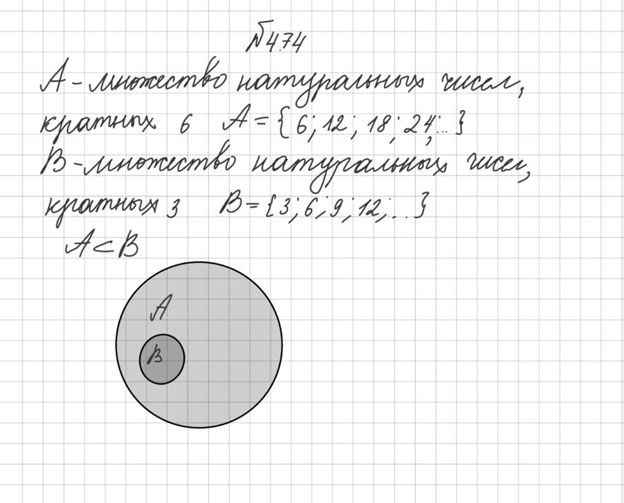 №474
А - множество натуральных чисел,
кратных 6 А = {6; 12; 18; 24; ...}
В - множество натуральных чисел,
кратных 3 В = {3; 6; 9; 12; ...}
А ⊂ В
А
В